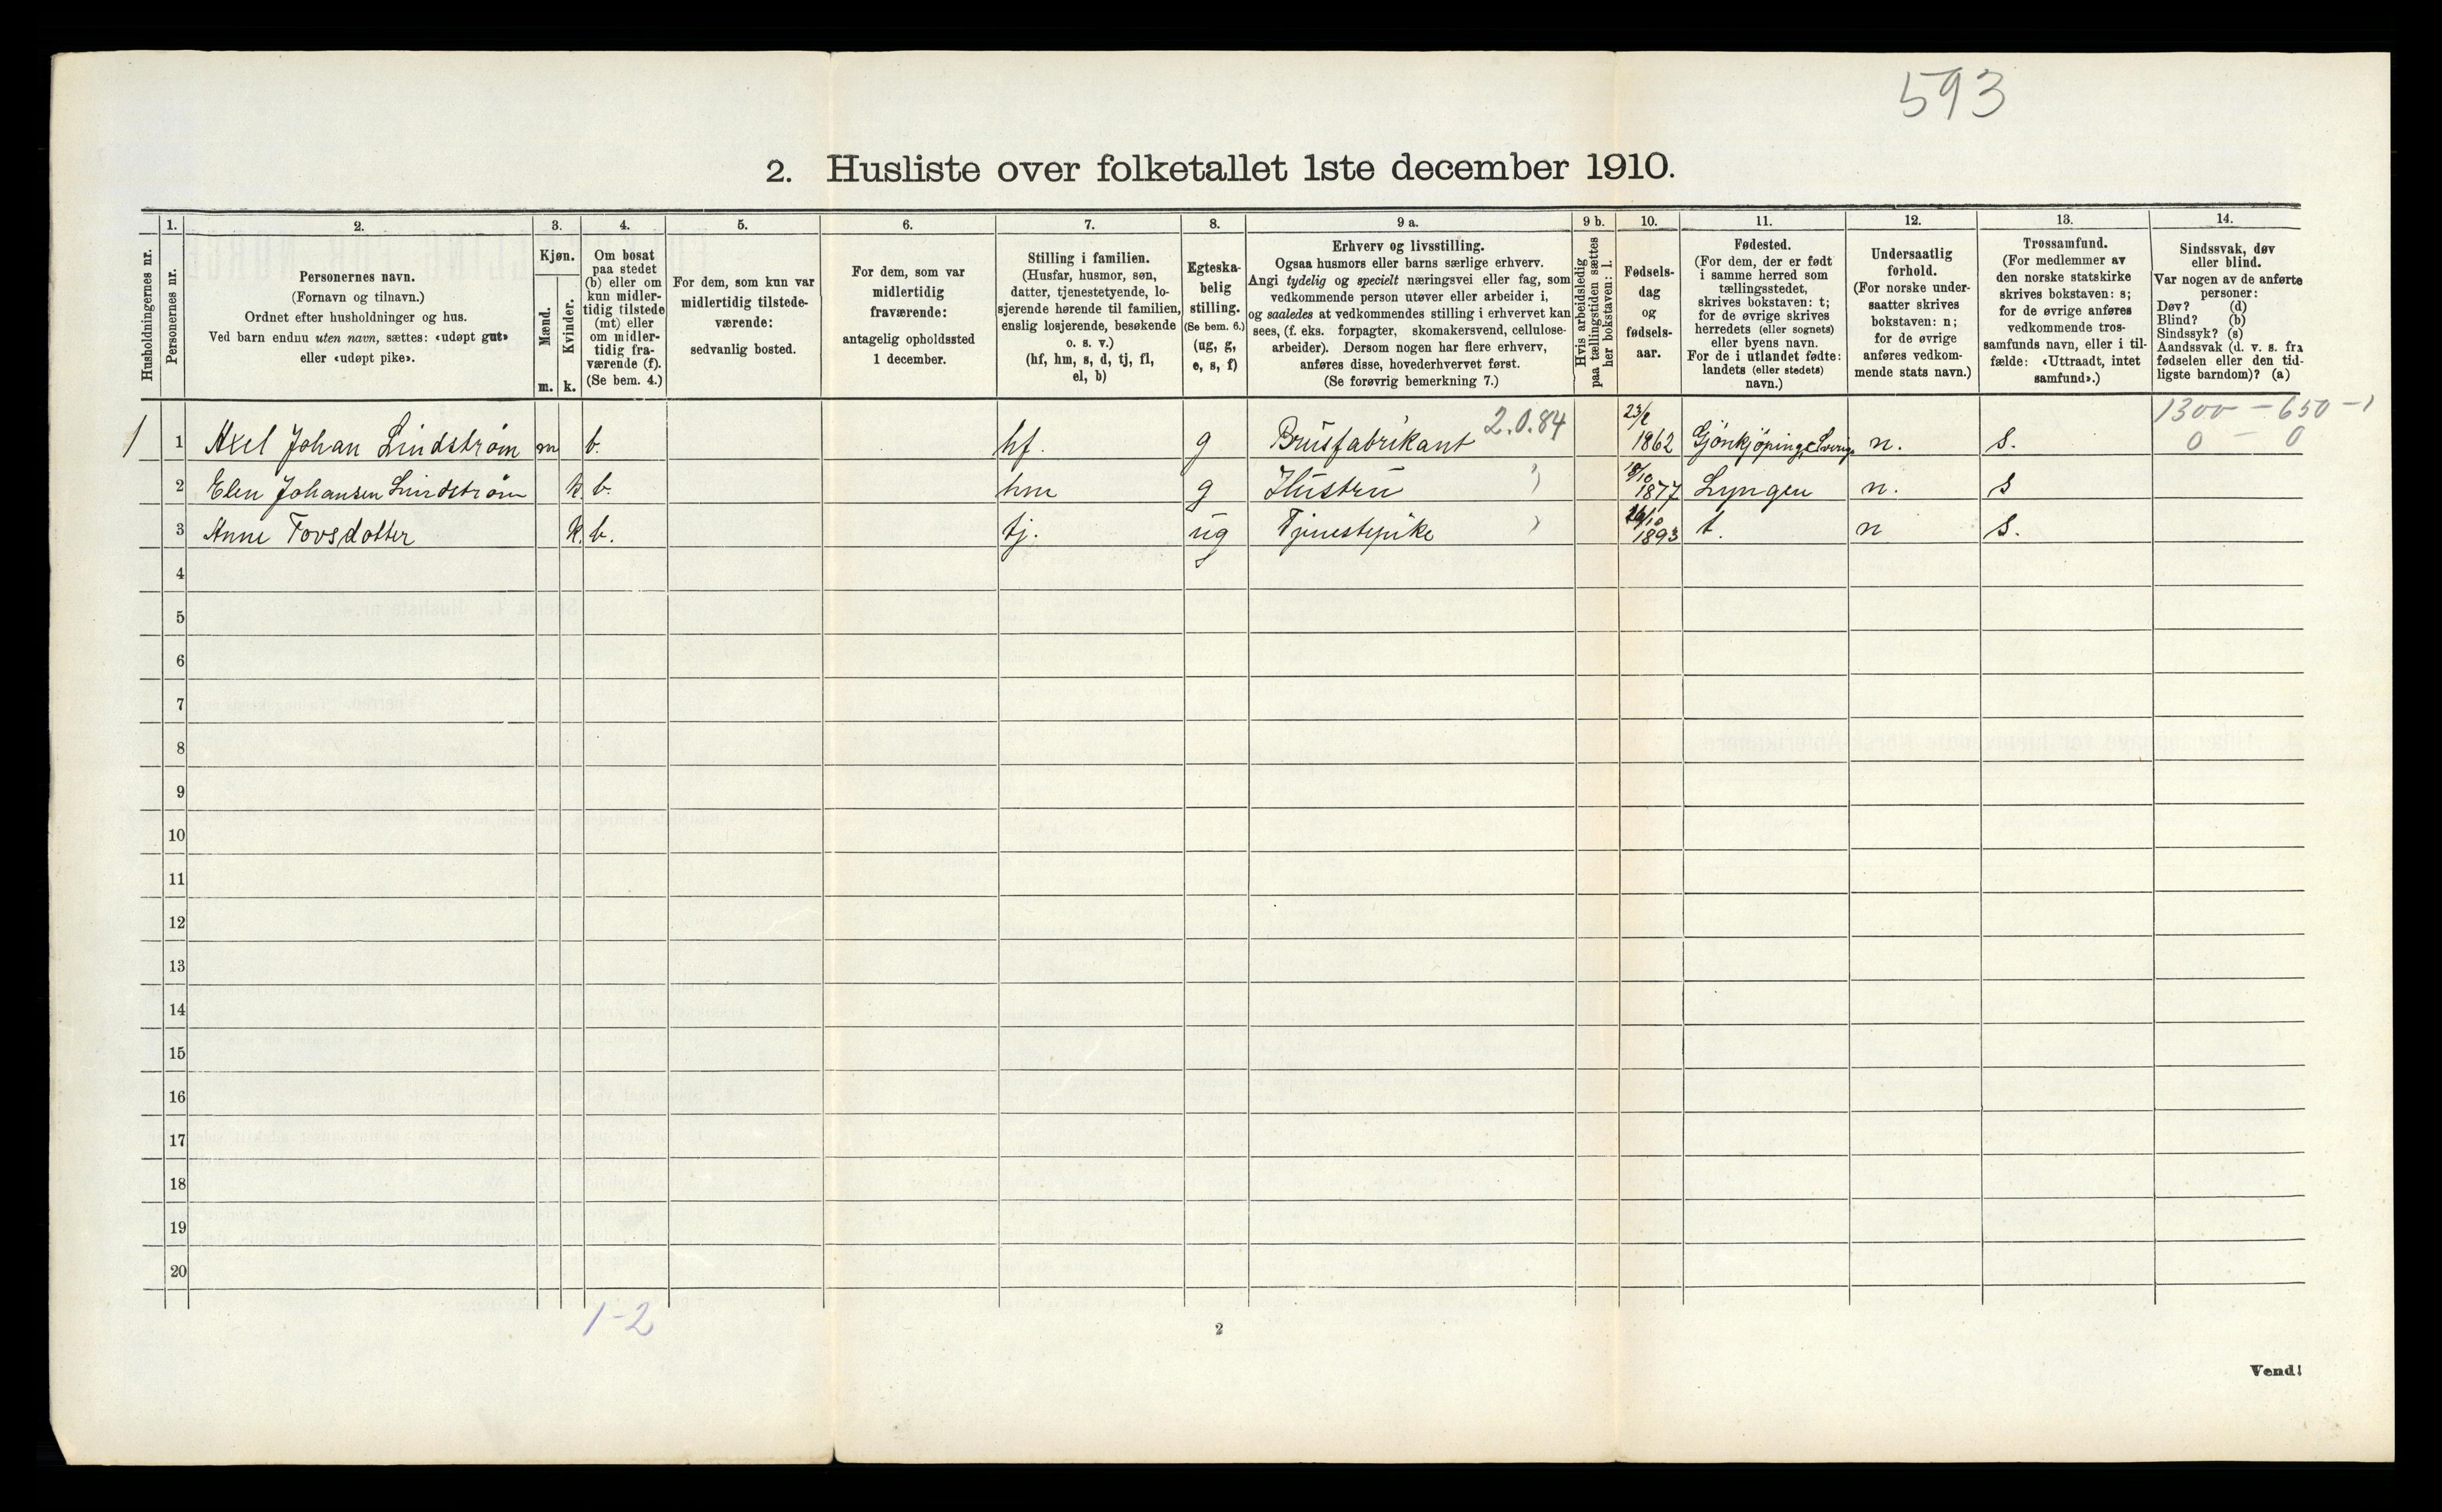 593
2. Husliste over folketallet 1ste december 1910.
Husholdningernes nr.
1.
Personernes nr.
2.
Personernes navn.
(Fornavn og tilnavn.)
Ordnet efter husholdninger og hus.
Ved barn endnu uten navn, sættes: «udøpt gut»
eller «udøpt pike».
3.
Kjøn.
Mænd.
m.
Kvinder.
k.
4.
Om bosat
paa stedet
(b) eller om
kun midler-
tidig tilstede
(mt) eller
om midler-
tidig fra-
værende (f).
(Se bem. 4.)
5.
For dem, som kun var
midlertidig tilstede-
værende:
sedvanlig bosted.
6.
For dem, som var
midlertidig
fraværende:
antagelig opholdssted
1 december.
7.
Stilling i familien.
(Husfar, husmor, søn,
datter, tjenestetyende, lo-
sjerende hørende til familien,
enslig losjerende, besøkende
o. s. v.)
(hf, hm, s, d, tj, fl,
el, b)
8.
Egteska-
belig
stilling.
(Se bem. 6.)
(ug, g,
e, s, f)
9 a.
Erhverv og livsstilling.
Ogsaa husmors eller barns særlige erhverv.
Angi tydelig og specielt næringsvei eller fag, som
vedkommende person utøver eller arbeider i,
og saaledes at vedkommendes stilling i erhvervet kan
sees, (f. eks. forpagter, skomakersvend, cellulose-
arbeider). Dersom nogen har flere erhverv,
anføres disse, hovederhvervet først.
(Se forøvrig bemerkning 7.)
9 b.
Hvis arbeidsledig
paa tællingstiden sættes
her bokstaven: l.
10.
Fødsels-
dag
og
fødsels-
aar.
11.
Fødested.
(For dem, der er født
i samme herred som
tællingsstedet,
skrives bokstaven: t;
for de øvrige skrives
herredets (eller sognets)
eller byens navn.
For de i utlandet fødte:
landets (eller stedets)
navn.)
12.
Undersaatlig
forhold.
(For norske under-
saatter skrives
bokstaven: n;
for de øvrige
anføres vedkom-
mende stats navn.)
13.
Trossamfund.
(For medlemmer av
den norske statskirke
skrives bokstaven: s;
for de øvrige anføres
vedkommende tros-
samfunds navn, eller i til-
fælde: «Uttraadt, intet
samfund».)
14.
Sindssvak, døv
eller blind.
Var nogen av de anførte
personer:
Døv? (d)
Blind? (b)
Sindssyk? (s)
Aandssvak (d. v. s. fra
fødselen eller den tid-
ligste barndom)? (a)
1 1 Axel Johan Lindstrøm m b. hf. g Brusfabrikant 2.0.84 1862 Gjönkjöping, n. s. 1300 – 650 – 1
0 – 0
2 Elen Johansen Lindstrøm k. b. hm g Hustru 18/10 1877 Lyngen n. s
3 Anne Tovsdotter k. b. tj. ug Tjenestepike 26/10 1893 t. n s.
4
5
6
7
8
9
10
11
12
13
14
15
16
17
18
19
20
1-2
2
Vend!